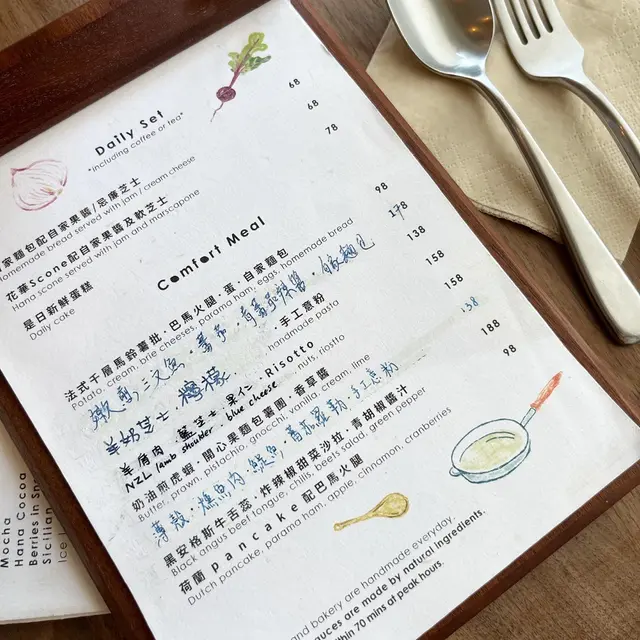 Daily Set
*including coffee or tea*
家麵包配自家果醬/忌廉芝士 68
homemade bread served with jam/ cream cheese
花華Scone配自家果醬及軟芝士 68
Hana scone served with jam and marscapone
是日新鮮蛋糕 78
Daily cake
Comfort Meal
法式千層馬鈴薯批·巴馬火腿·蛋·自家麵包 98
Potato, cream, brie cheeses, parama ham, eggs, homemade bread
三文魚 178
羊奶芝士·檸檬·手工意粉 138
handmade pasta
羊膊肉 藍芝士 果仁·Risotto 158
NZL lamb shoulder blue cheese nuts, riostto
奶油煎虎蝦·開心果麵包薯團·香草醬 158
Butter, prawn, pistachio, gnocchi, vanilla, cream, lime
手工意粉 138
黑安格斯牛舌蕊·炸辣椒甜菜沙拉·青胡椒醬汁 188
Black angus beef tongue, chills, beets salad, green pepper
荷蘭 pancake 配巴馬火腿 98
Dutch pancake, parama ham, apple, cinnamon, cranberries
and bakery are handmade everyday.
sauces are made by natural ingredients.
within 70 mins at peak hours.
Mocha
Hana Cocoa
Berries in
Sicilian
Ice